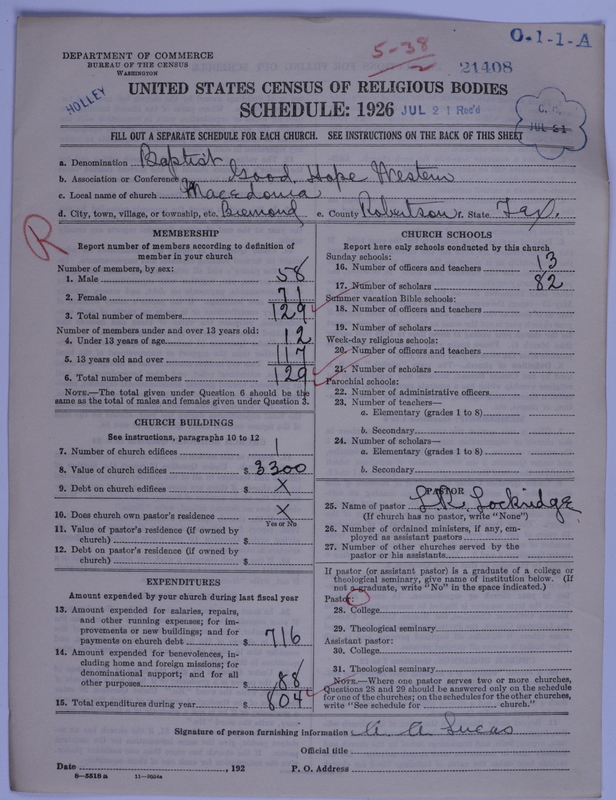 O-1-1-A
5-38
2
21408
DEPARTMENT OF COMMERCE
BUREAU OF THE CENSUS
WASHINGTON
HOLLEY
UNITED STATES CENSUS OF RELIGIOUS BODIES
SCHEDULE: 1926 JUL 21 Rec'd
JUL 21
FILL OUT A SEPARATE SCHEDULE FOR EACH CHURCH. SEE INSTRUCTIONS ON THE BACK OF THIS SHEET
a. Denomination Baptist
b. Association or Conference Good Hope Western
c. Local name of church Macedonia
d. City, town, village, or township, etc. Bremond e. County Robertson f. State Tex.
R
MEMBERSHIP
Report number of members according to definition of
member in your church
Number of members, by sex:
1. Male 58
2. Female 71
3. Total number of members 129
Number of members under and over 13 years old:
4. Under 13 years of age 12
5. 13 years old and over 117
6. Total number of members 129
NOTE.—The total given under Question 6 should be the
same as the total of males and females given under Question 3.
CHURCH BUILDINGS
See instructions, paragraphs 10 to 12
7. Number of church edifices 1
8. Value of church edifices $ 3300
9. Debt on church edifices $ X
10. Does church own pastor's residence X
Yes or No
11. Value of pastor's residence (if owned by
church) $
12. Debt on pastor's residence (if owned by
church) $
EXPENDITURES
Amount expended by your church during last fiscal year
13. Amount expended for salaries, repairs,
and other running expenses; for im-
provements or new buildings; and for
payments on church debt $ 716
14. Amount expended for benevolences, in-
cluding home and foreign missions; for
denominational support; and for all
other purposes $ 88
15. Total expenditures during year $ 804
CHURCH SCHOOLS
Report here only schools conducted by this church
Sunday schools:
16. Number of officers and teachers 13
17. Number of scholars 82
Summer vacation Bible schools:
18. Number of officers and teachers
19. Number of scholars
Week-day religious schools:
20. Number of officers and teachers
21. Number of scholars
Parochial schools:
22. Number of administrative officers
23. Number of teachers—
a. Elementary (grades 1 to 8)
b. Secondary
24. Number of scholars—
a. Elementary (grades 1 to 8)
b. Secondary
PASTOR
25. Name of pastor L.R. Lockridge
(If church has no pastor, write "None")
26. Number of ordained ministers, if any, em-
ployed as assistant pastors
27. Number of other churches served by the
pastor or his assistants
If pastor (or assistant pastor) is a graduate of a college or
theological seminary, give name of institution below. (If
not a graduate, write "No" in the space indicated.)
Pastor:
28. College
29. Theological seminary
Assistant pastor:
30. College
31. Theological seminary
NOTE.—Where one pastor serves two or more churches,
Questions 28 and 29 should be answered only on the schedule
for one of the churches; on the schedules for the other churches,
write "See schedule for ______ church."
Signature of person furnishing information A. A. Lucas
Official title
Date , 192 P. O. Address
8—5518 a 11—9034a